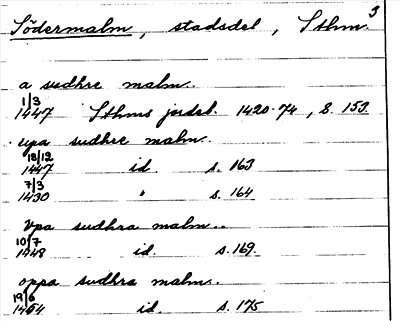 3
Södermalm, stadsdel, Sthm.
a sudhre malm..
1/3
1447 Sthms jordeb. 1420-74, s. 153
upa sudhre malm.
18/12
1447 id. s. 163
7/3
1430 " s. 164
vpa sudhra malm..
10/7
1448 id. s. 169.
oppa sudhra malm..
19/6
1454 id. s. 175